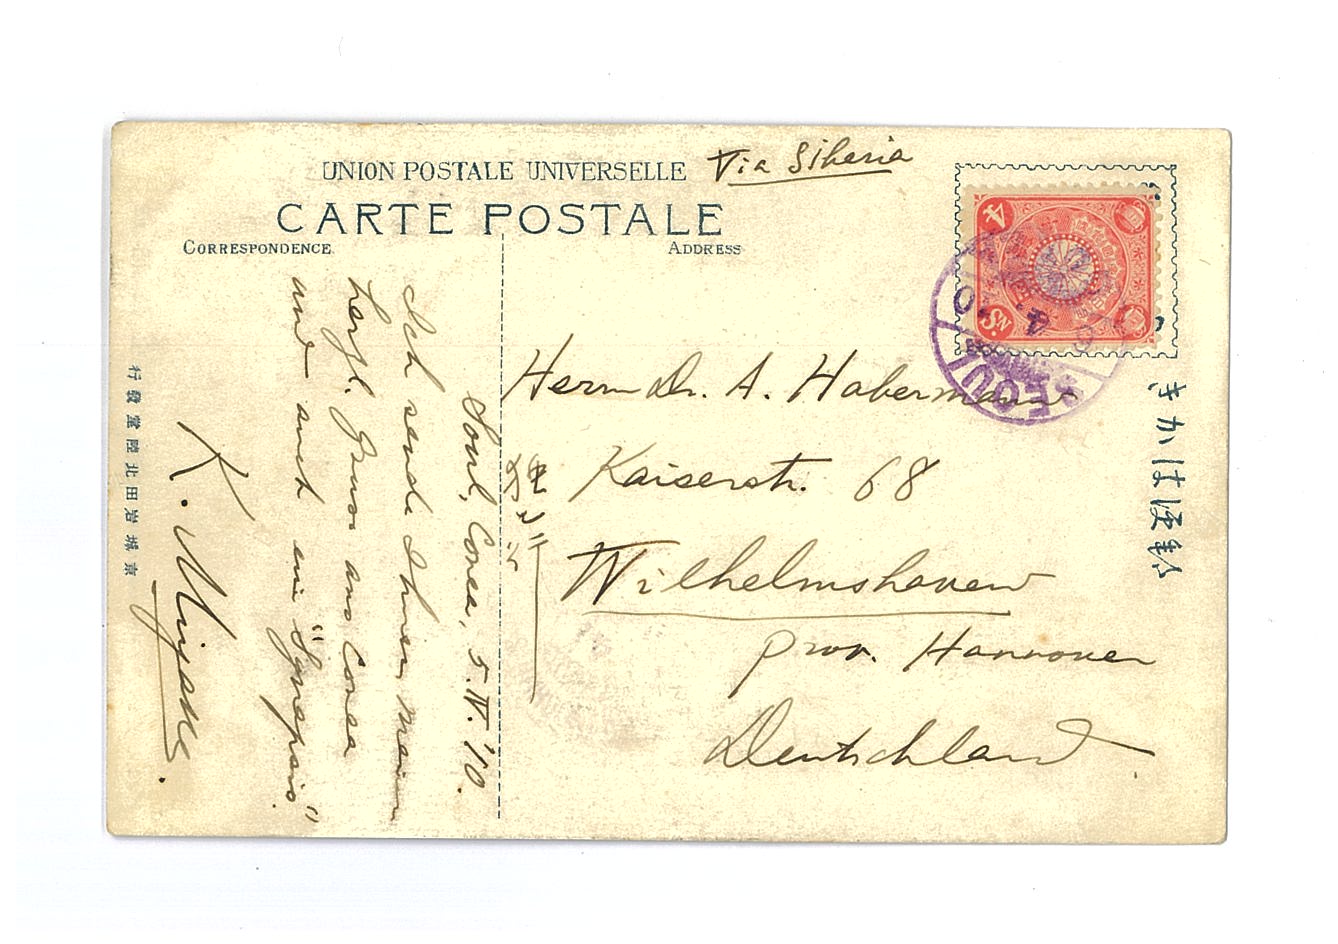 UNION POSTALE UNIVERSELLE
Via Siberia
CARTE POSTALE
CORRESPONDENCE
ADDRESS
4
Sn.
SEOUL
きかは便郵
Herrn Dr. A. Habermann
Kaiserstr. 68
Wilhelmshaven
Prov. Hannover
Deutschland
Soul, Corea, 5. IV. '10.
Ich sende Ihnen meinen
herzl. Gruss aus Corea
und auch ein
K.
行發堂陸北田岩城京